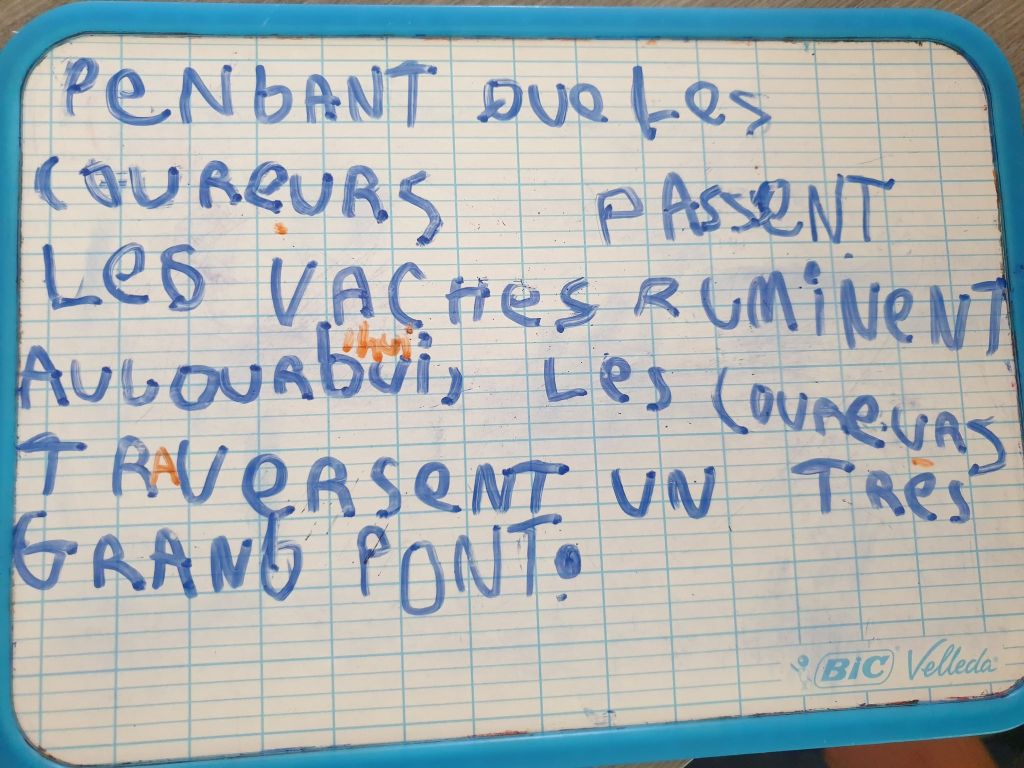 PeNbANT QUe Les
COUReURS PASSeNT
Les VACHes RUMiNeNT
AUJOURbui, Les COUReURS
'hui
TRAVeRSeNT UN TRÈs
GRANb PONT.
BIC Velleda